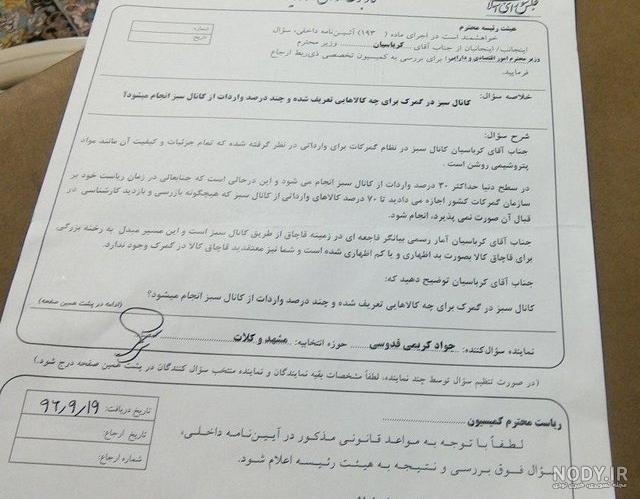 مجلس شورای اسلامی
شماره:
تاریخ:
هیئت رئیسه محترم
خواهشمند است در اجرای ماده ( ۱۹۳) آئین‌نامه داخلی، سؤال
اینجانب/ اینجانبان از جناب آقای .... کرباسیان .... وزیر محترم
وزیر محترم امور اقتصادی و دارایی را برای بررسی به کمیسیون تخصصی ذی‌ربط ارجاع
فرمایید.
خلاصه سؤال: کانال سبز در گمرک برای چه کالاهایی تعریف شده و چند درصد واردات از کانال سبز انجام میشود؟
شرح سؤال:
جناب آقای کرباسیان کانال سبز در نظام گمرکات برای وارداتی در نظر گرفته شده که تمام جزئیات و کیفیت آن مانند مواد
پتروشیمی روشن است .
در سطح دنیا حداکثر ۳۰ درصد واردات از کانال سبز انجام می شود و این درحالی است که جنابعالی در زمان ریاست خود بر
سازمان گمرکات کشور اجازه می دادید تا ۷۰ درصد کالاهای وارداتی از کانال سبز که هیچگونه بازرسی و بازدید کارشناسی در
قبال آن صورت نمی پذیرد، انجام شود.
جناب آقای کرباسیان آمار رسمی بیانگر فاجعه ای در زمینه قاچاق از طریق کانال سبز است و این مسیر مبدل به رخنه بزرگی
برای قاچاق کالا بصورت بد اظهاری و یا کم اظهاری شده است و شما نیز معتقدید قاچاق کالا در گمرک وجود ندارد.
جناب آقای کرباسیان توضیح دهید که:
کانال سبز در گمرک برای چه کالاهایی تعریف شده و چند درصد واردات از کانال سبز انجام میشود؟
(ادامه در پشت همین صفحه)
نماینده سؤال‌کننده: جواد کریمی قدوسی ...... حوزه انتخابیه: ...... مشهد و کلات
(در صورت تنظیم سؤال توسط چند نماینده، لطفاً مشخصات بقیه نمایندگان و نماینده منتخب سؤال کنندگان در پشت همین صفحه درج شود.)
ریاست محترم کمیسیون
تاریخ دریافت: ۹۶,۹,۱۹
تاریخ ارجاع:
شماره ارجاع:
لطفاً با توجه به مواعد قانونی مذکور در آیین‌نامه داخلی،
سؤال فوق بررسی و نتیجه به هیئت رئیسه اعلام شود.
NODY.IR